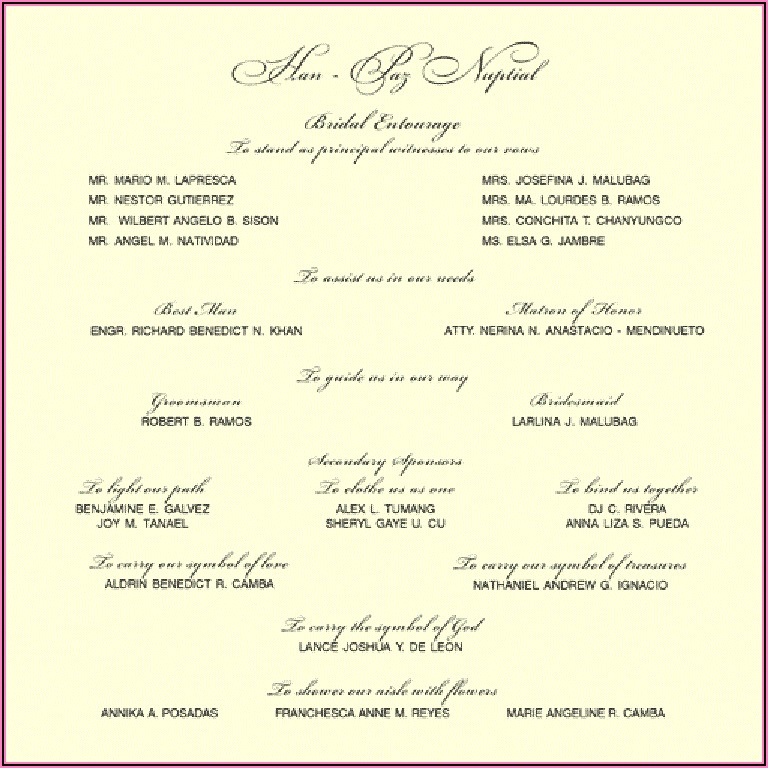 Han - Paz Nuptial
Bridal Entourage
To stand as principal witnesses to our vows
MR. MARIO M. LAPRESCA MRS. JOSEFINA J. MALUBAG
MR. NESTOR GUTIERREZ MRS. MA. LOURDES B. RAMOS
MR. WILBERT ANGELO B. SISON MRS. CONCHITA T. CHANYUNGCO
MR. ANGEL M. NATIVIDAD MS. ELSA G. JAMBRE
To assist us in our needs
Best Man Matron of Honor
ENGR. RICHARD BENEDICT N. KHAN ATTY. NERINA N. ANASTACIO - MENDINUETO
To guide us in our way
Groomsman Bridesmaid
ROBERT B. RAMOS LARLINA J. MALUBAG
Secondary Sponsors
To light our path To clothe us as one To bind us together
BENJAMINE E. GALVEZ ALEX L. TUMANG DJ C. RIVERA
JOY M. TANAEL SHERYL GAYE U. CU ANNA LIZA S. PUEDA
To carry our symbol of love To carry our symbol of treasures
ALDRIN BENEDICT R. CAMBA NATHANIEL ANDREW G. IGNACIO
To carry the symbol of God
LANCE JOSHUA Y. DE LEON
To shower our aisle with flowers
ANNIKA A. POSADAS FRANCHESCA ANNE M. REYES MARIE ANGELINE R. CAMBA